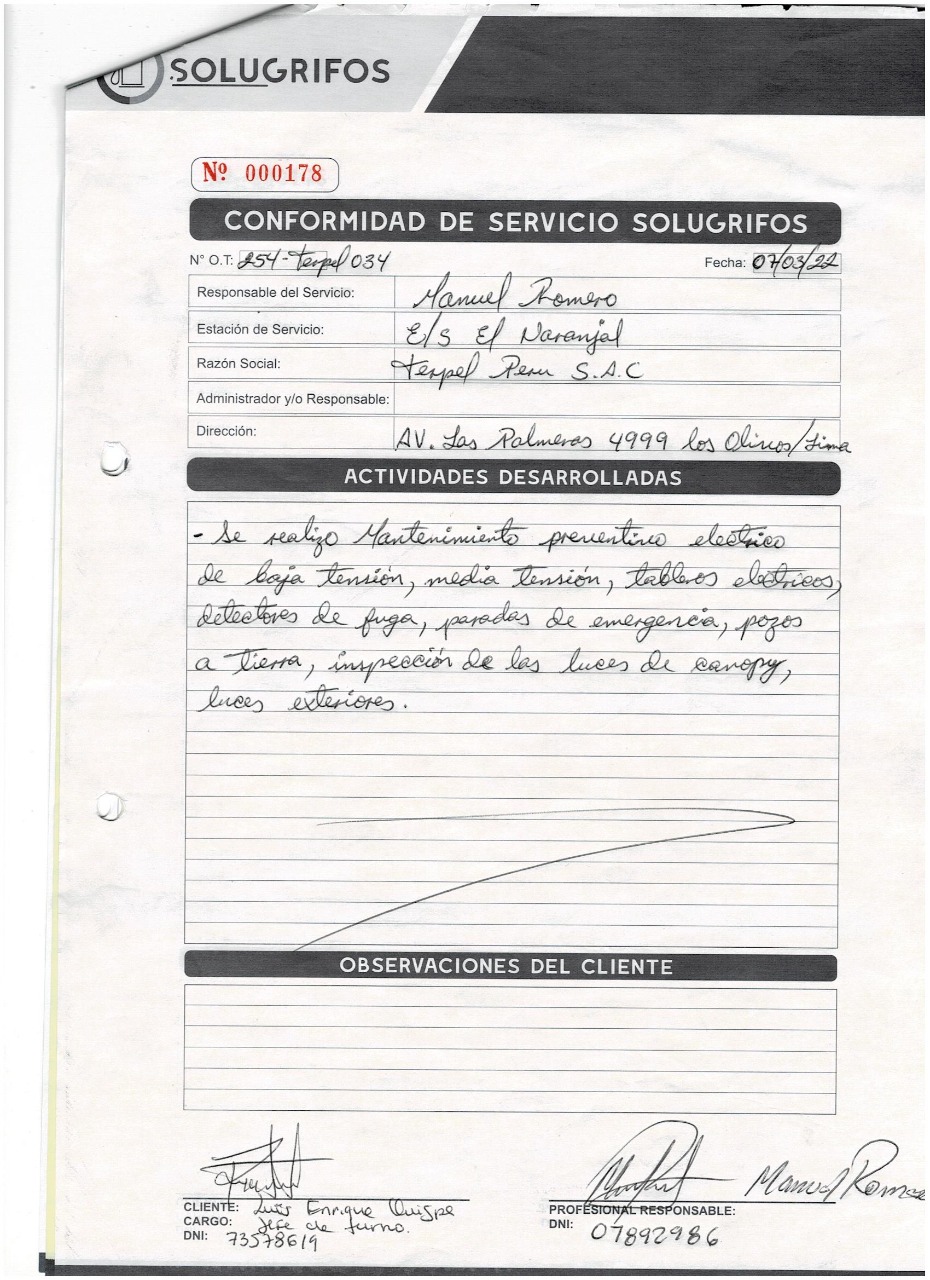 SOLUGRIFOS
Nº 000178
CONFORMIDAD DE SERVICIO SOLUGRIFOS
N° O.T: 254-Terpel 034 Fecha: 07/03/22
Responsable del Servicio: Manuel Romero
Estación de Servicio: E/S El Naranjal
Razón Social: Terpel Peru S.A.C
Administrador y/o Responsable:
Dirección: AV. Las Palmeras 4999 los Olivos/Lima
ACTIVIDADES DESARROLLADAS
- Se realizo Mantenimiento preventivo electrico
de baja tensión, media tensión, tableros electricos,
detectores de fuga, paradas de emergencia, pozos
a tierra, inspección de las luces de canopy,
luces exteriores.
OBSERVACIONES DEL CLIENTE
CLIENTE: Luis Enrique Quispe
CARGO: Jefe de turno.
DNI: 73578619
Manuel Romero
PROFESIONAL RESPONSABLE:
DNI: 07892986